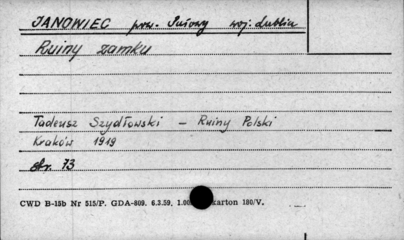 JANOWIEC pow. Puławy woj. Lublin
Ruiny zamku
Tadeusz Szydłowski - Ruiny Polski
Kraków 1919
str. 73
CWD B-15b Nr 515/P. GDA-809. 6.3.59, 1.00 karton 180/V.